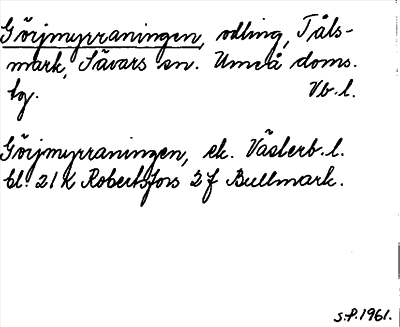 Görjmyrraningen, odling, Tåls-
mark, Sävars sn. Umeå doms.
tg. Vb. l.
Görjmyrraningen, ek. Västerb. l.
bl. 21K Robertsfors 2f Bullmark.
S.P. 1961.